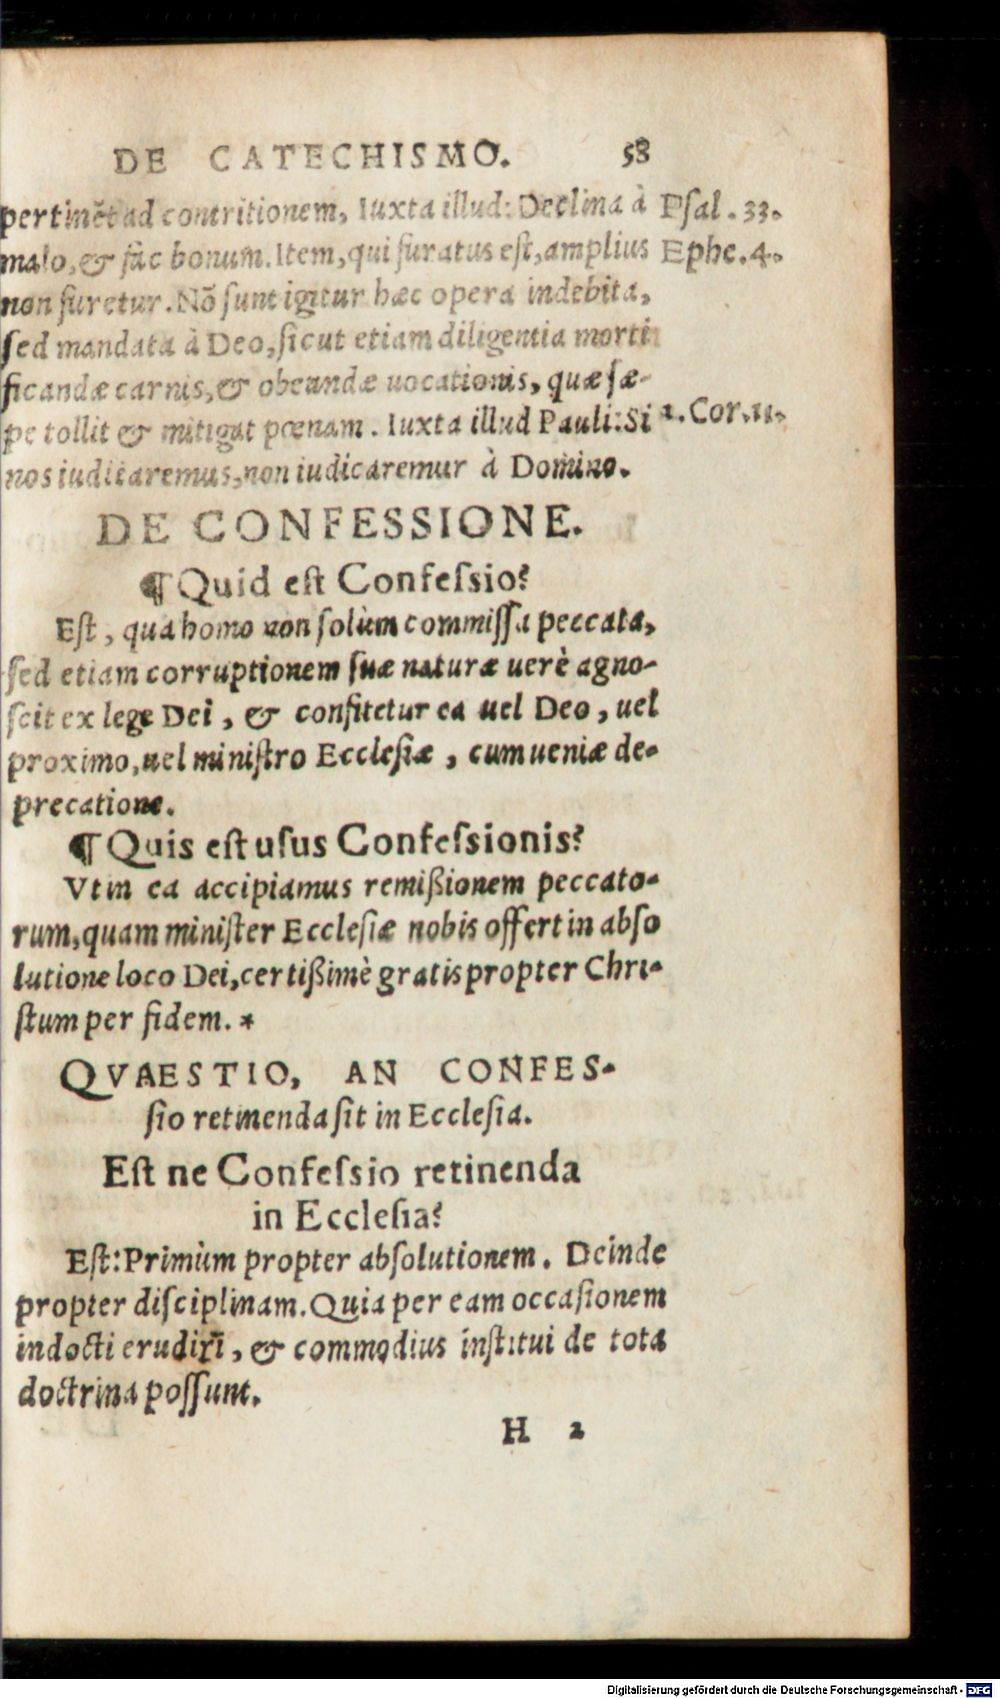 DE CATECHISMO. 58
pertinẽt ad contritionem, Iuxta illud: Declina à Psal. 33.
malo, & fac bonum. Item, qui furatus est, amplius Ephe. 4.
non furetur. Nõ sunt igitur hæc opera indebita,
sed mandata à Deo, sicut etiam diligentia morti
ficandæ carnis, & obeundæ uocationis, quæ sæ-
pe tollit & mitigat pœnam. Iuxta illud Pauli: Si 1. Cor. 11.
nos iudicaremus, non iudicaremur à Domino.
DE CONFESSIONE.
¶ Quid est Confessio?
Est, qua homo non solùm commissa peccata,
sed etiam corruptionem suæ naturæ uerè agno-
scit ex lege Dei, & confitetur ea uel Deo, uel
proximo, uel ministro Ecclesiæ, cum ueniæ de-
precatione.
¶ Quis est usus Confessionis?
Vt in ea accipiamus remißionem peccato-
rum, quam minister Ecclesiæ nobis offert in abso
lutione loco Dei, certißimè gratis propter Chri-
stum per fidem. *
QVAESTIO, AN CONFES-
sio retinenda sit in Ecclesia.
Est ne Confessio retinenda
in Ecclesia?
Est: Primùm propter absolutionem. Deinde
propter disciplinam. Quia per eam occasionem
indocti erudiri, & commodius institui de tota
doctrina possunt.
H 2
Digitalisierung gefördert durch die Deutsche Forschungsgemeinschaft - DFG